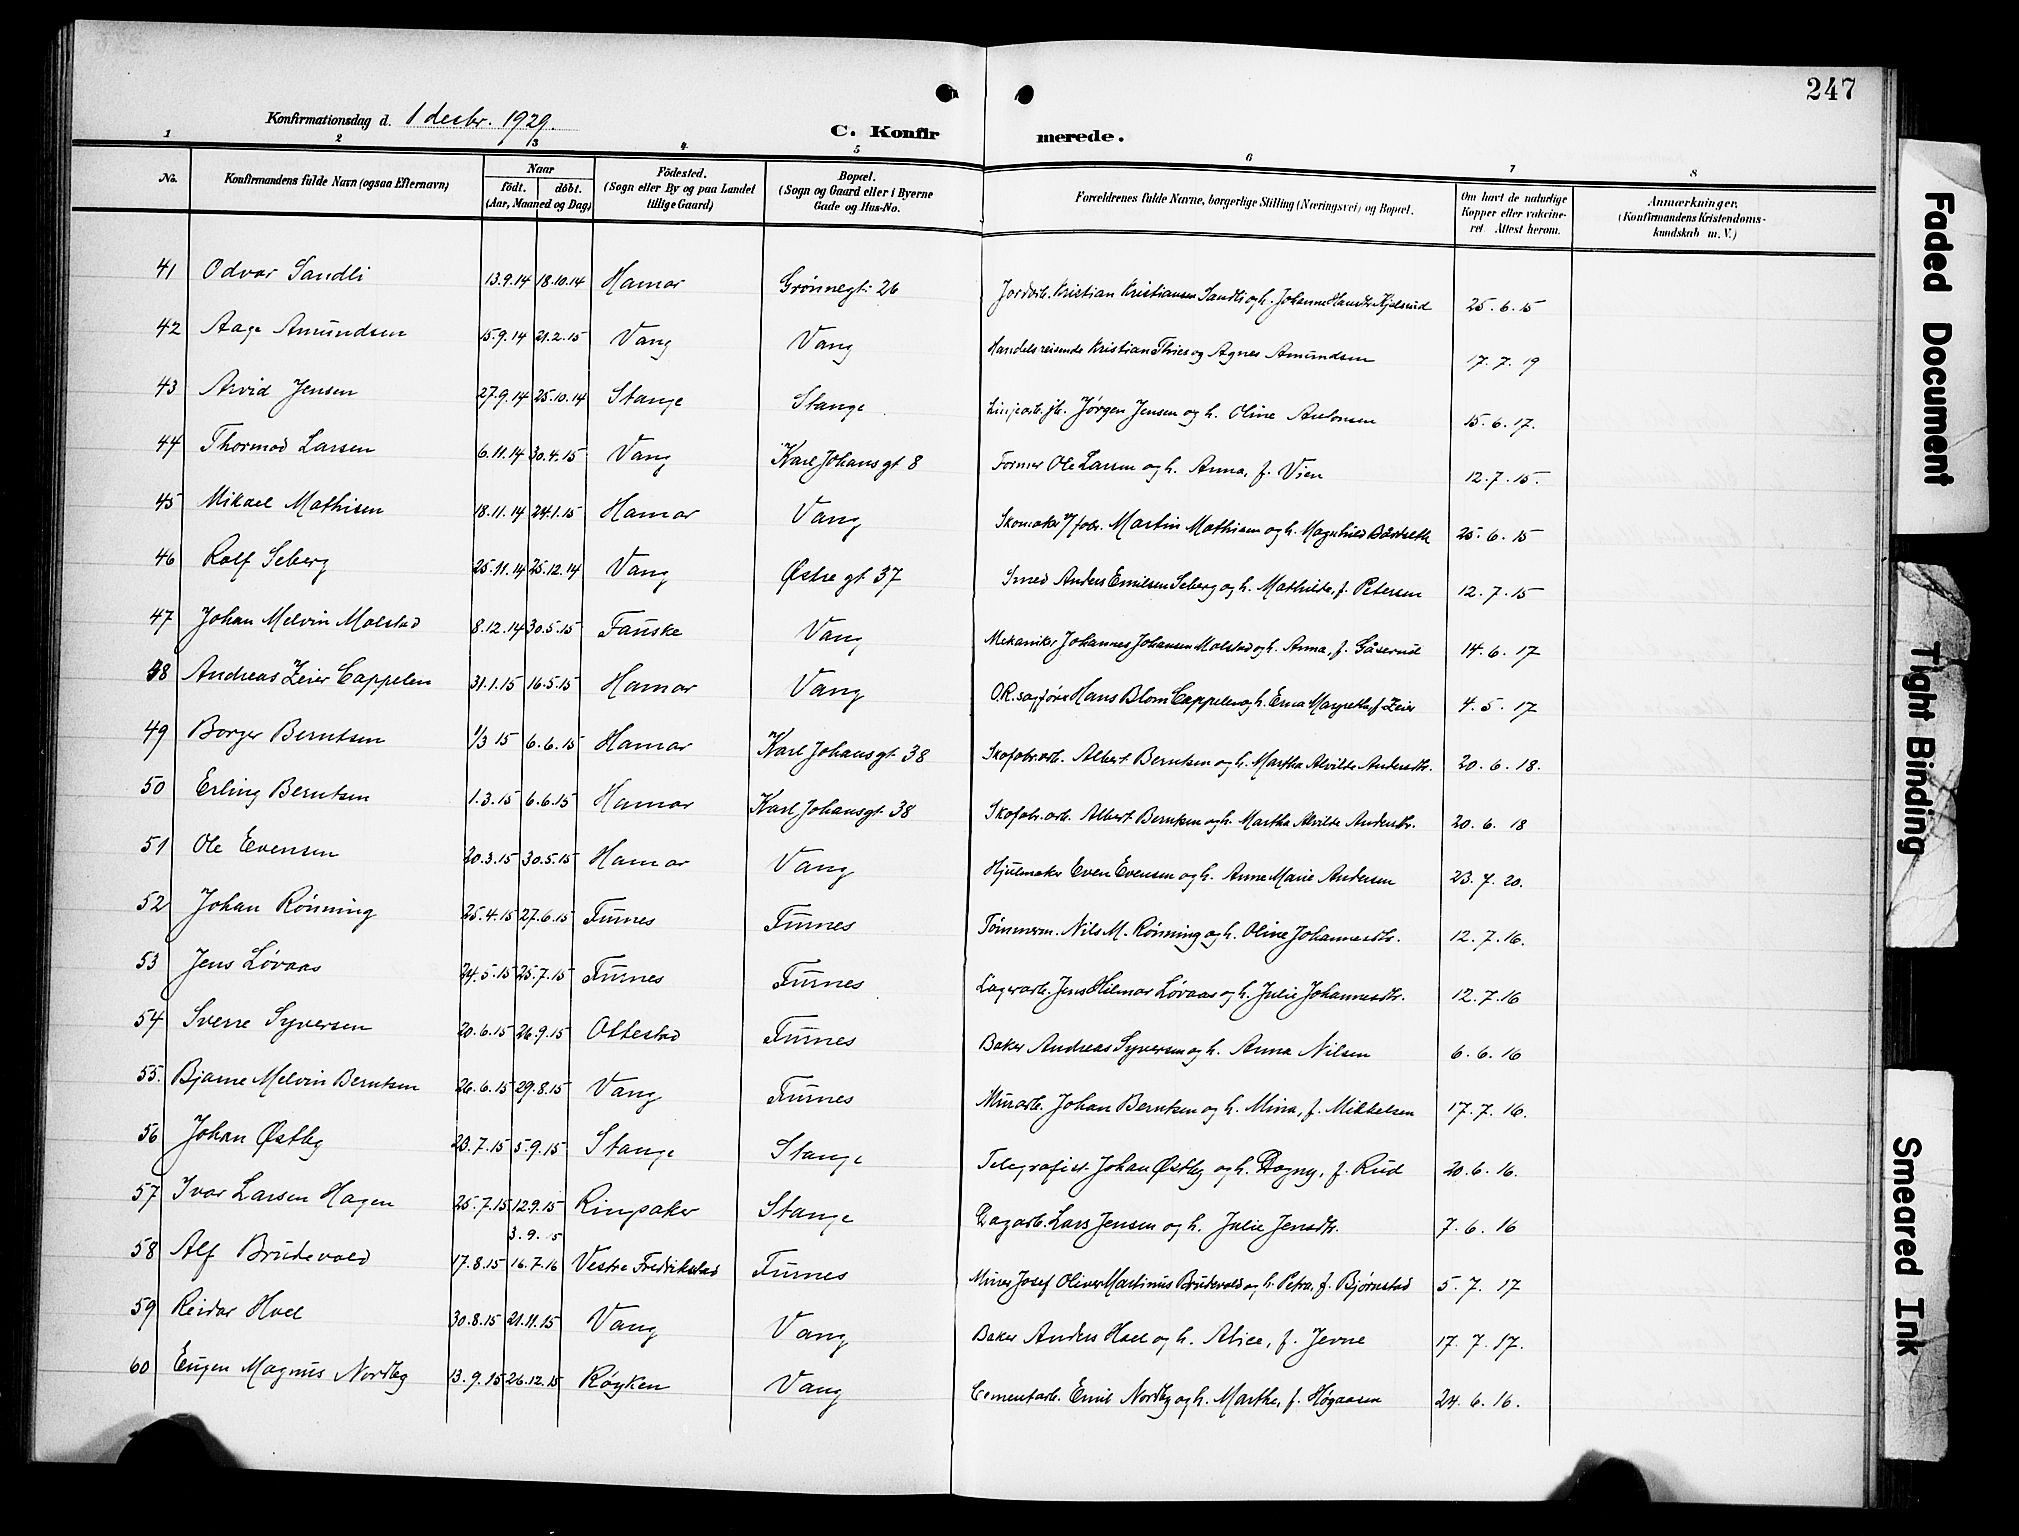 247
Konfirmationsdag d. 1 desbr. 1929.
C. Konfirmerede.
1 2 3 4 5 6 7 8
No. Konfirmandens fulde Navn (ogsaa Efternavn) Naar født. døbt. (Aar, Maaned og Dag) Fødested. (Sogn eller By og paa Landet tillige Gaard) Bopæl. (Sogn og Gaard eller i Byerne Gade og Hus-No. Forældrenes fulde Navne, borgerlige Stilling (Næringsvei) og Bopæl. Om havt de naturlige Kopper eller vakcineret. Attest herom. Anmærkninger. (Konfirmandens Kristendomskundskab m. V.)
41 Odvar Sandli 13.9.14 18.10.14 Hamar Grønnegt. 26 Jordarb. Kristian Kristiansen Sandli og h. Johanne Hansdtr. Kjelsrud 25.6.15
42 Aage Amundsen 15.9.14 21.2.15 Vang Vang Handelsreisende Kristian Thies og Agnes Amundsen 17.7.19
43 Arvid Jensen 27.9.14 25.10.14 Stange Stange Linjearb. Jørgen Jensen og h. Oline Antonsen 15.6.17.
44 Thormod Larsen 6.11.14 30.4.15 Vang Karl Johansgt 8 Former Ole Larsen og h. Anna, f. Vien 12.7.15.
45 Mikael Mathisen 18.11.14 24.1.15 Hamar Vang Skomaker v/fabr. Martin Mathisen og h. Magnhild Bårdseth 25.6.15
46 Rolf Seberg 25.11.14 25.12.14 Vang Østre gt 37 Smed Anders Emilsen Seberg og h. Mathilde, f. Petersen 12.7.15
47 Johan Melvin Molstad 8.12.14 30.5.15 Fauske Vang Mekaniker Johannes Johansen Molstad og h. Anna, f. Gåserud 14.6.17
48 Andreas Zeier Cappelen 31.1.15 16.5.15 Hamar Vang O.R.sagfører Hans Blom Cappelen og h. Erna Margrethe f. Zeier 4.5.17
49 Borger Berntsen 1/3 15 6.6.15 Hamar Karl Johansgt 38 Skofabr.arb. Albert Berntsen og h. Martha Alvilde Andersdtr. 20.6.18.
50 Erling Berntsen 1.3.15 6.6.15 Hamar Karl Johansgt 38 Skofabr.arb. Albert Berntsen og h. Martha Alvilde Andersdtr. 20.6.18
51 Ole Evensen 20.3.15 30.5.15 Hamar Vang Hjulmaker Even Evensen og h. Anne Marie Andersen 23.7.20.
52 Johan Rönning 25.4.15 27.6.15 Furnes Furnes Tømmerm. Nils M. Rönning og h. Oline Johannesdtr. 12.7.16.
53 Jens Løvaas 24.5.15 25.7.15 Furnes Furnes Lagerarb. Jens Hilmar Løvaas og h. Julie Johannesdtr. 12.7.16
54 Sverre Syversen 20.6.15 26.9.15 Ottestad Furnes Baker Andreas Syversen og h. Anna Nilsen 6.6.16
55. Bjarne Melvin Berntsen 26.6.15 29.8.15 Vang Furnes Murarb. Johan Berntsen og h. Mina, f. Mikkelsen 17.7.16.
56 Johan Østby 23.7.15 5.9.15 Stange Stange Telegrafist Johan Østby og h. Dagny, f. Rud 20.6.16.
57 Ivar Larsen Hagen 25.7.15 12.9.15 Ringsaker Stange Dagarb. Lars Jensen og h. Julie Jensdtr. 7.6.16
58 Alf Brudevold 17.8.15 3.9.15 16.7.16 Vestre Fredrikstad Furnes Murer Josef Oliver Martinus Brudevold og h. Petra, f. Bjørnstad 5.7.17
59 Reidar Hoel 30.8.15 21.11.15 Vang Vang Baker Anders Hoel og h. Alice, f. Jevne 17.7.17.
60 Eugen Magnus Nordby 13.9.15 26.12.15 Røyken Vang Cementarb. Emil Nordby og h. Marthe, f. Høgaasen 24.6.16.
Faded Document
Tight Binding
Smeared Ink